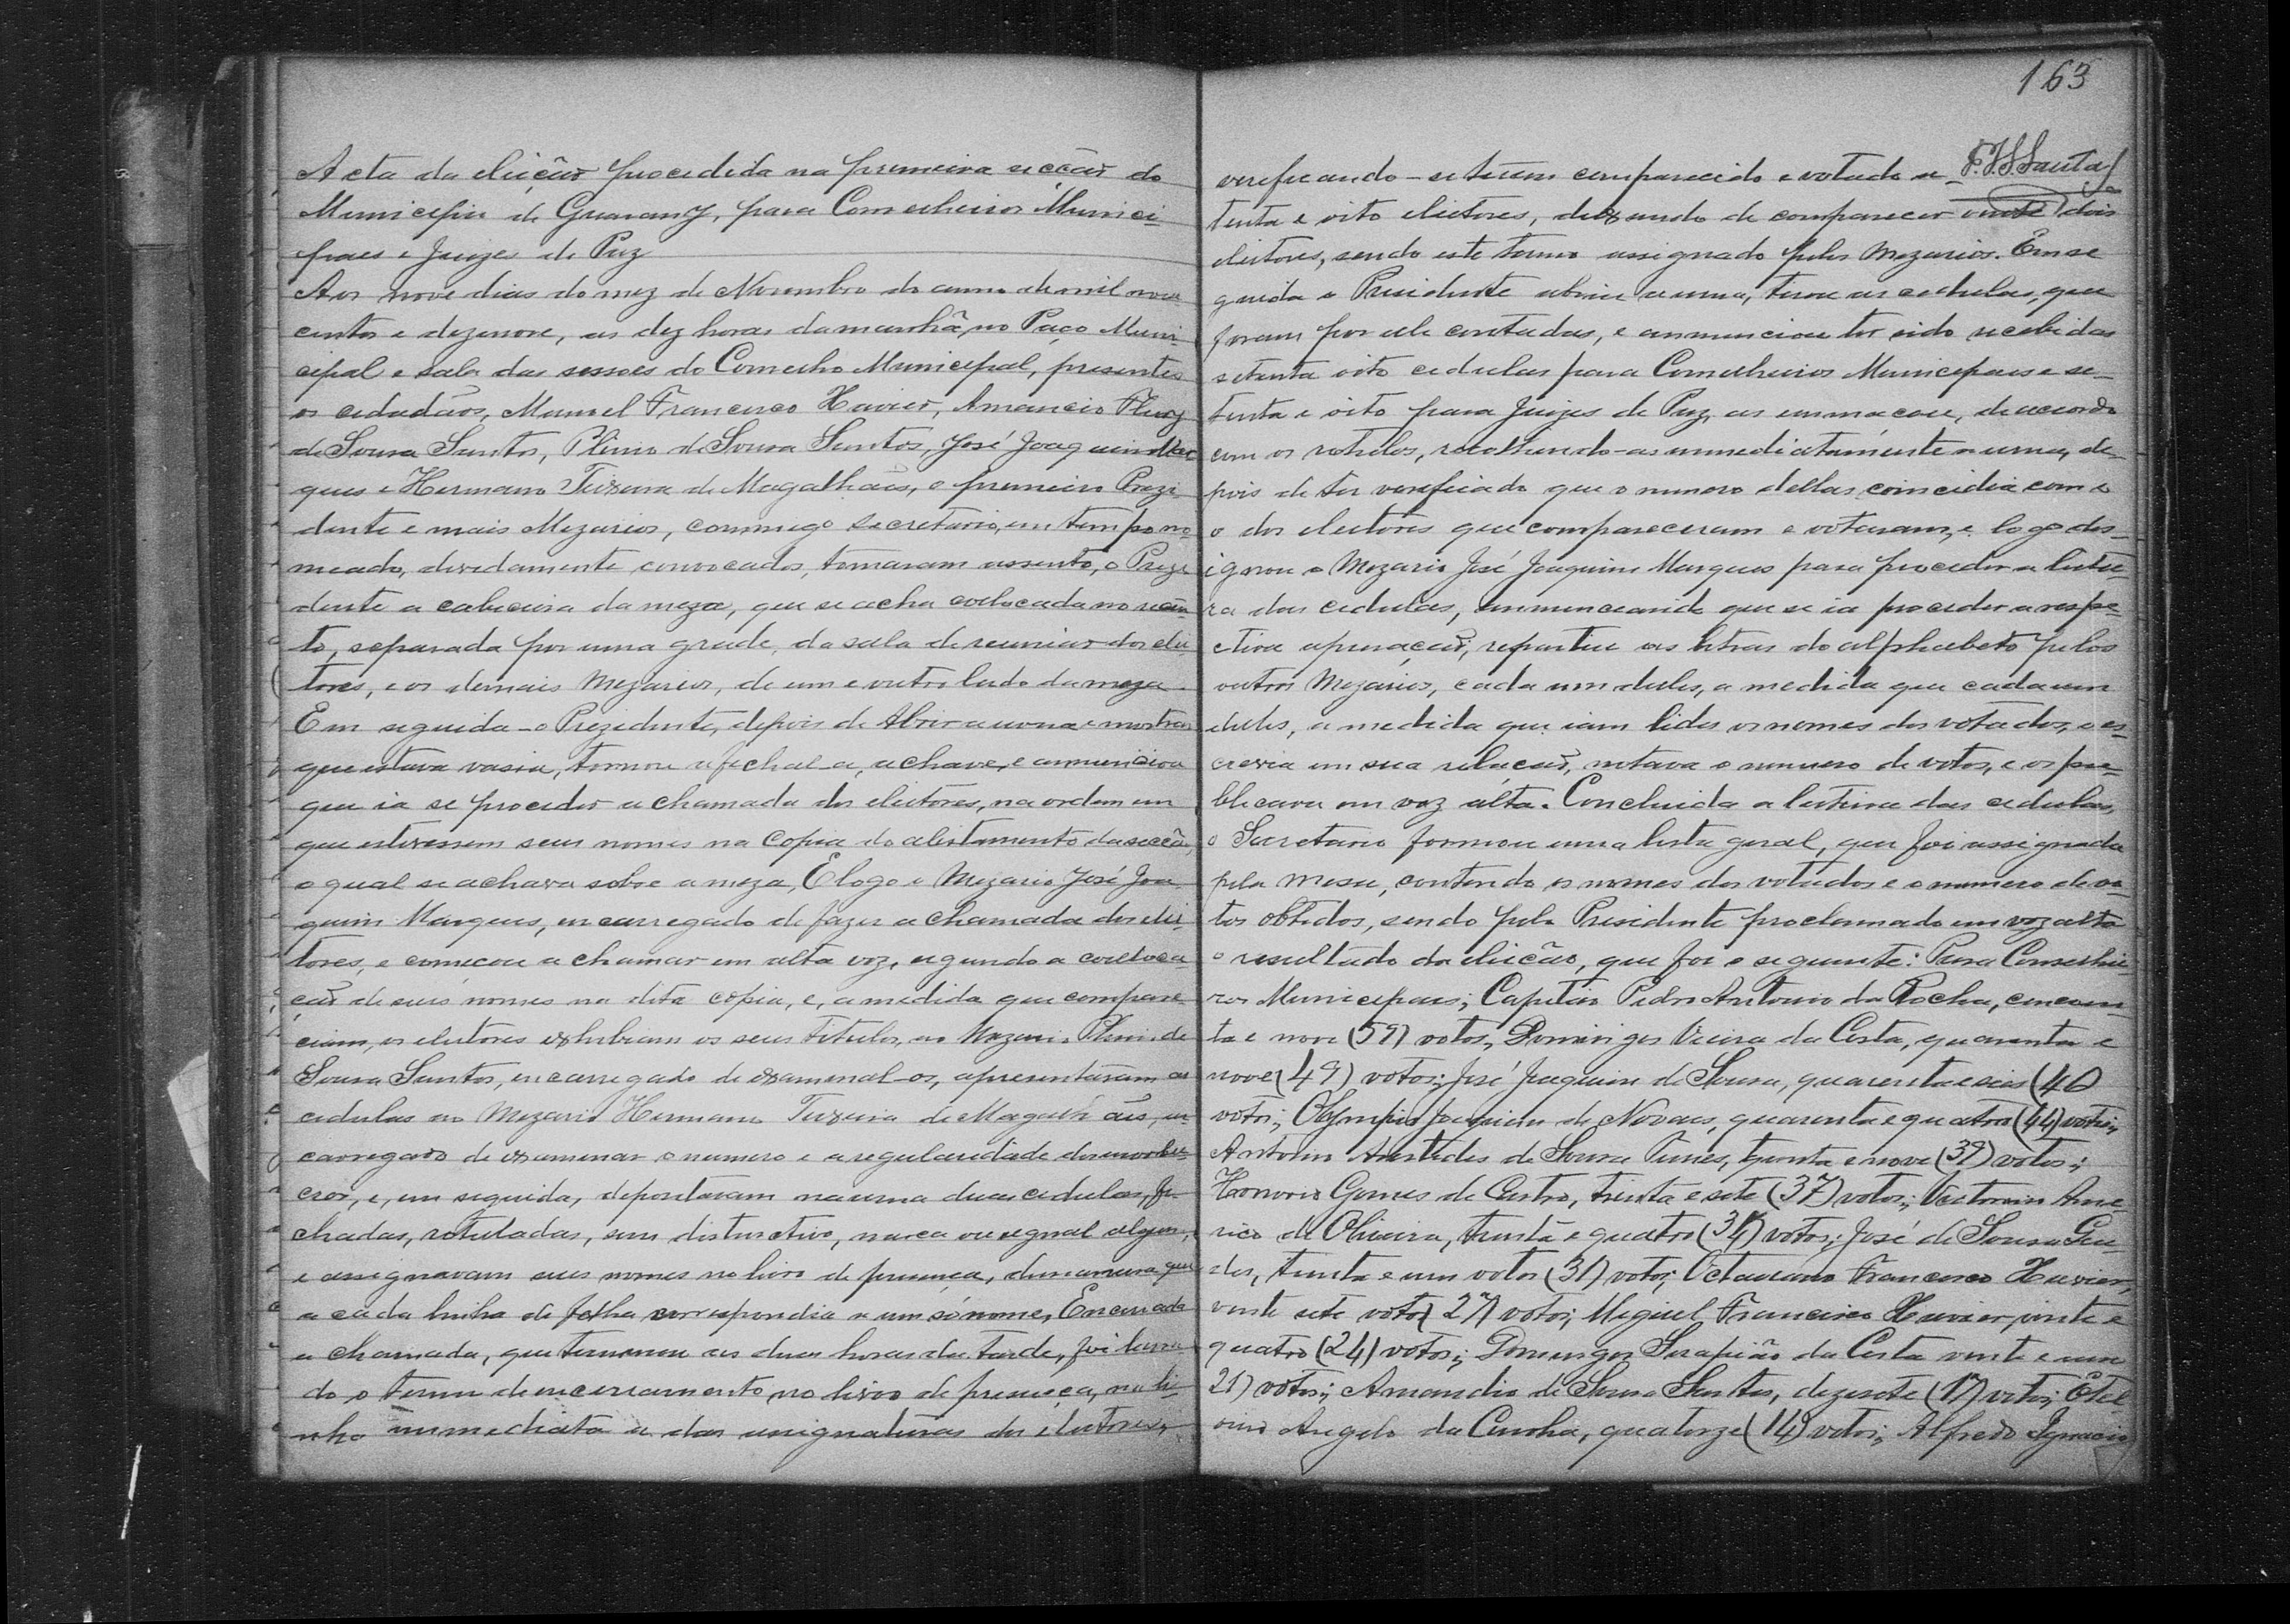 Acta da eleição procedida na primeira secção do
Municipio de Guarany, para Conselheiros Munici-
paes e Juizes de Paz
Aos nove dias do mez de Novembro do anno de mil nove
centos e dezenove, as dez horas da manhã, no Paço Muni
cipal e sala das sessoes do Conselho Municipal, presentes
os cidadãos, Manoel Francisco Xavier, Amancio
de Sousa Santos, Plinio de Sousa Santos, José Joaquim Mar
ques e Hermano Teixeira de Magalhães, o primeiro Prezi
dente e mais Mezarios, commigo secretario, em tempo no-
meado, devidamente convocados, tomaram assento, o Prezi
dente a cabeceira da meza, que se acha collocada no recin
to, separada por uma grade, da sala de reuniao dos elei
tores, e os demais Mezarios, de um e outro lado da meza.
Em seguida o Prezidente, depois de Abrir a urna e mostrar
que estava vasia, tornou a fechal-a, a chave, e annunciou
que ia se proceder a chamada dos eleitores, na ordem em
que estivessem seus nomes na copia do alistamento da secção,
o qual se achava sobre a meza, E logo o Mezario José Joa
quim Marques, encarregado de fazer a chamada dos elei
tores, e começou a chamar em alta voz, segundo a colloca-
ção de seus nomes na dita copia, e, a medida que compare
ciam, os eleitores exhibiam os seus titulos, ao Mezario Plinio de
Sousa Santos, encarregado de examinal-os, apresentaram as
cedulas ao Mezario Hermano Teixeira de Magalhães, en-
carregado de examinar o numero e a regularidade dos
e, em seguida, depositavam na urna duas cedulas, fe
chadas, rotuladas, sem distinctivo, marca ou signal algum,
e assignavam seus nomes no livro de presença, de maneira que
a cada linha de folha correspondia a um só nome, Encerrada
a chamada, que terminou as duas horas da tarde, foi lavra
do o termo de encerramento no livro de presença, na li-
nha immediata a das assignaturas dos eleitores,
163
verificando-se terem comparecido e votado se- F.H.S. Santos
tenta e oito eleitores, deixando de comparecer vinte dois
eleitores, sendo este termo assignado pelos Mezarios. Em se
guida o Presidente abriu a urna, tirou as cedulas, que
foram por ele contadas, e annunciou ter sido recebidas
setenta oito cedulas para Conselheiros Municipaes e se-
tenta e oito para Juizes de Paz, as emmaçou, de accordo
com os rotulos, recolhendo-as immediatamente a urna, de-
pois de ter verificado que o numero dellas coincidia com o
o dos eleitores que compareceram e votaram, e logo des-
ignou o Mezario José Joaquim Marques para proceder a leitu-
ra das cedulas, annunciando que se ia proceder a respe-
ctiva apuração, repartiu as letras do alphabeto pelos
outros Mezarios, cada um deles, a medida que cada um
deles, a medida que iam lidos os nomes dos votados, o es-
crevia em sua relação, notava o numero de votos, e os pu-
blicava em voz alta. Concluida a leitura das cedulas,
o Secretario formou uma lista geral, que foi assignada
pela mesa, contendo os nomes dos votados e o numero de vo-
tos obtidos, sendo pelo Presidente proclamado em voz alta
o resultado da eleição, que foi o seguinte: Para Conselhei-
ros Municipaes; Capitão Pedro Antonio da Rocha, cincoen-
ta e nove (59) votos, Domingos Vieira da Costa, quarenta e
nove (49) votos; José Joaquim de Sousa, quarenta e seis (46
votos; Olympio Joaquim de Novaes, quarenta e quatro (44) votos;
Antonio Aristides de Sousa, trinta e nove (39) votos;
Honorio Gomes de Castro, trinta e sete (37) votos; Victorino Ame
rico de Oliveira, trinta e quatro (34) votos; José de Sousa Gue-
des, trinta e um votos (31) votos; Octaviano Francisco Xavier,
vinte sete votos (27) votos; Miguel Francisco Xavier, vinte e
quatro (24) votos; Domingos Serapião da Costa vinte e um
21) votos; Amandio de Sousa Santos, dezesete (17) votos; Etel
vino Angelo da Cunha, quatorze (14) votos; Alfredo Ignacio